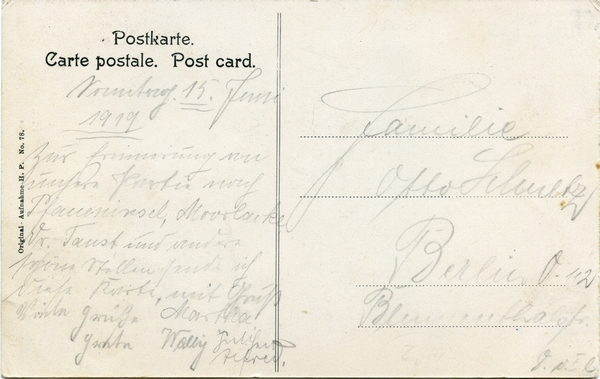 Postkarte.
Carte postale. Post card.
Original-Aufnahme H. P. No. 78.
Sonntag. 15. Juni
1919
Zur Erinnerung an
unsere Partie nach
Pfaueninsel, Moorlacke
Dr. Faust und andere
schöne Stellen sende ich
diese Karte, mit Gruß
Viele Grüße Martha
Grete Wally
Alfred.
Familie
Otto Schulz
Berlin O. 12
Blumenthalstr.